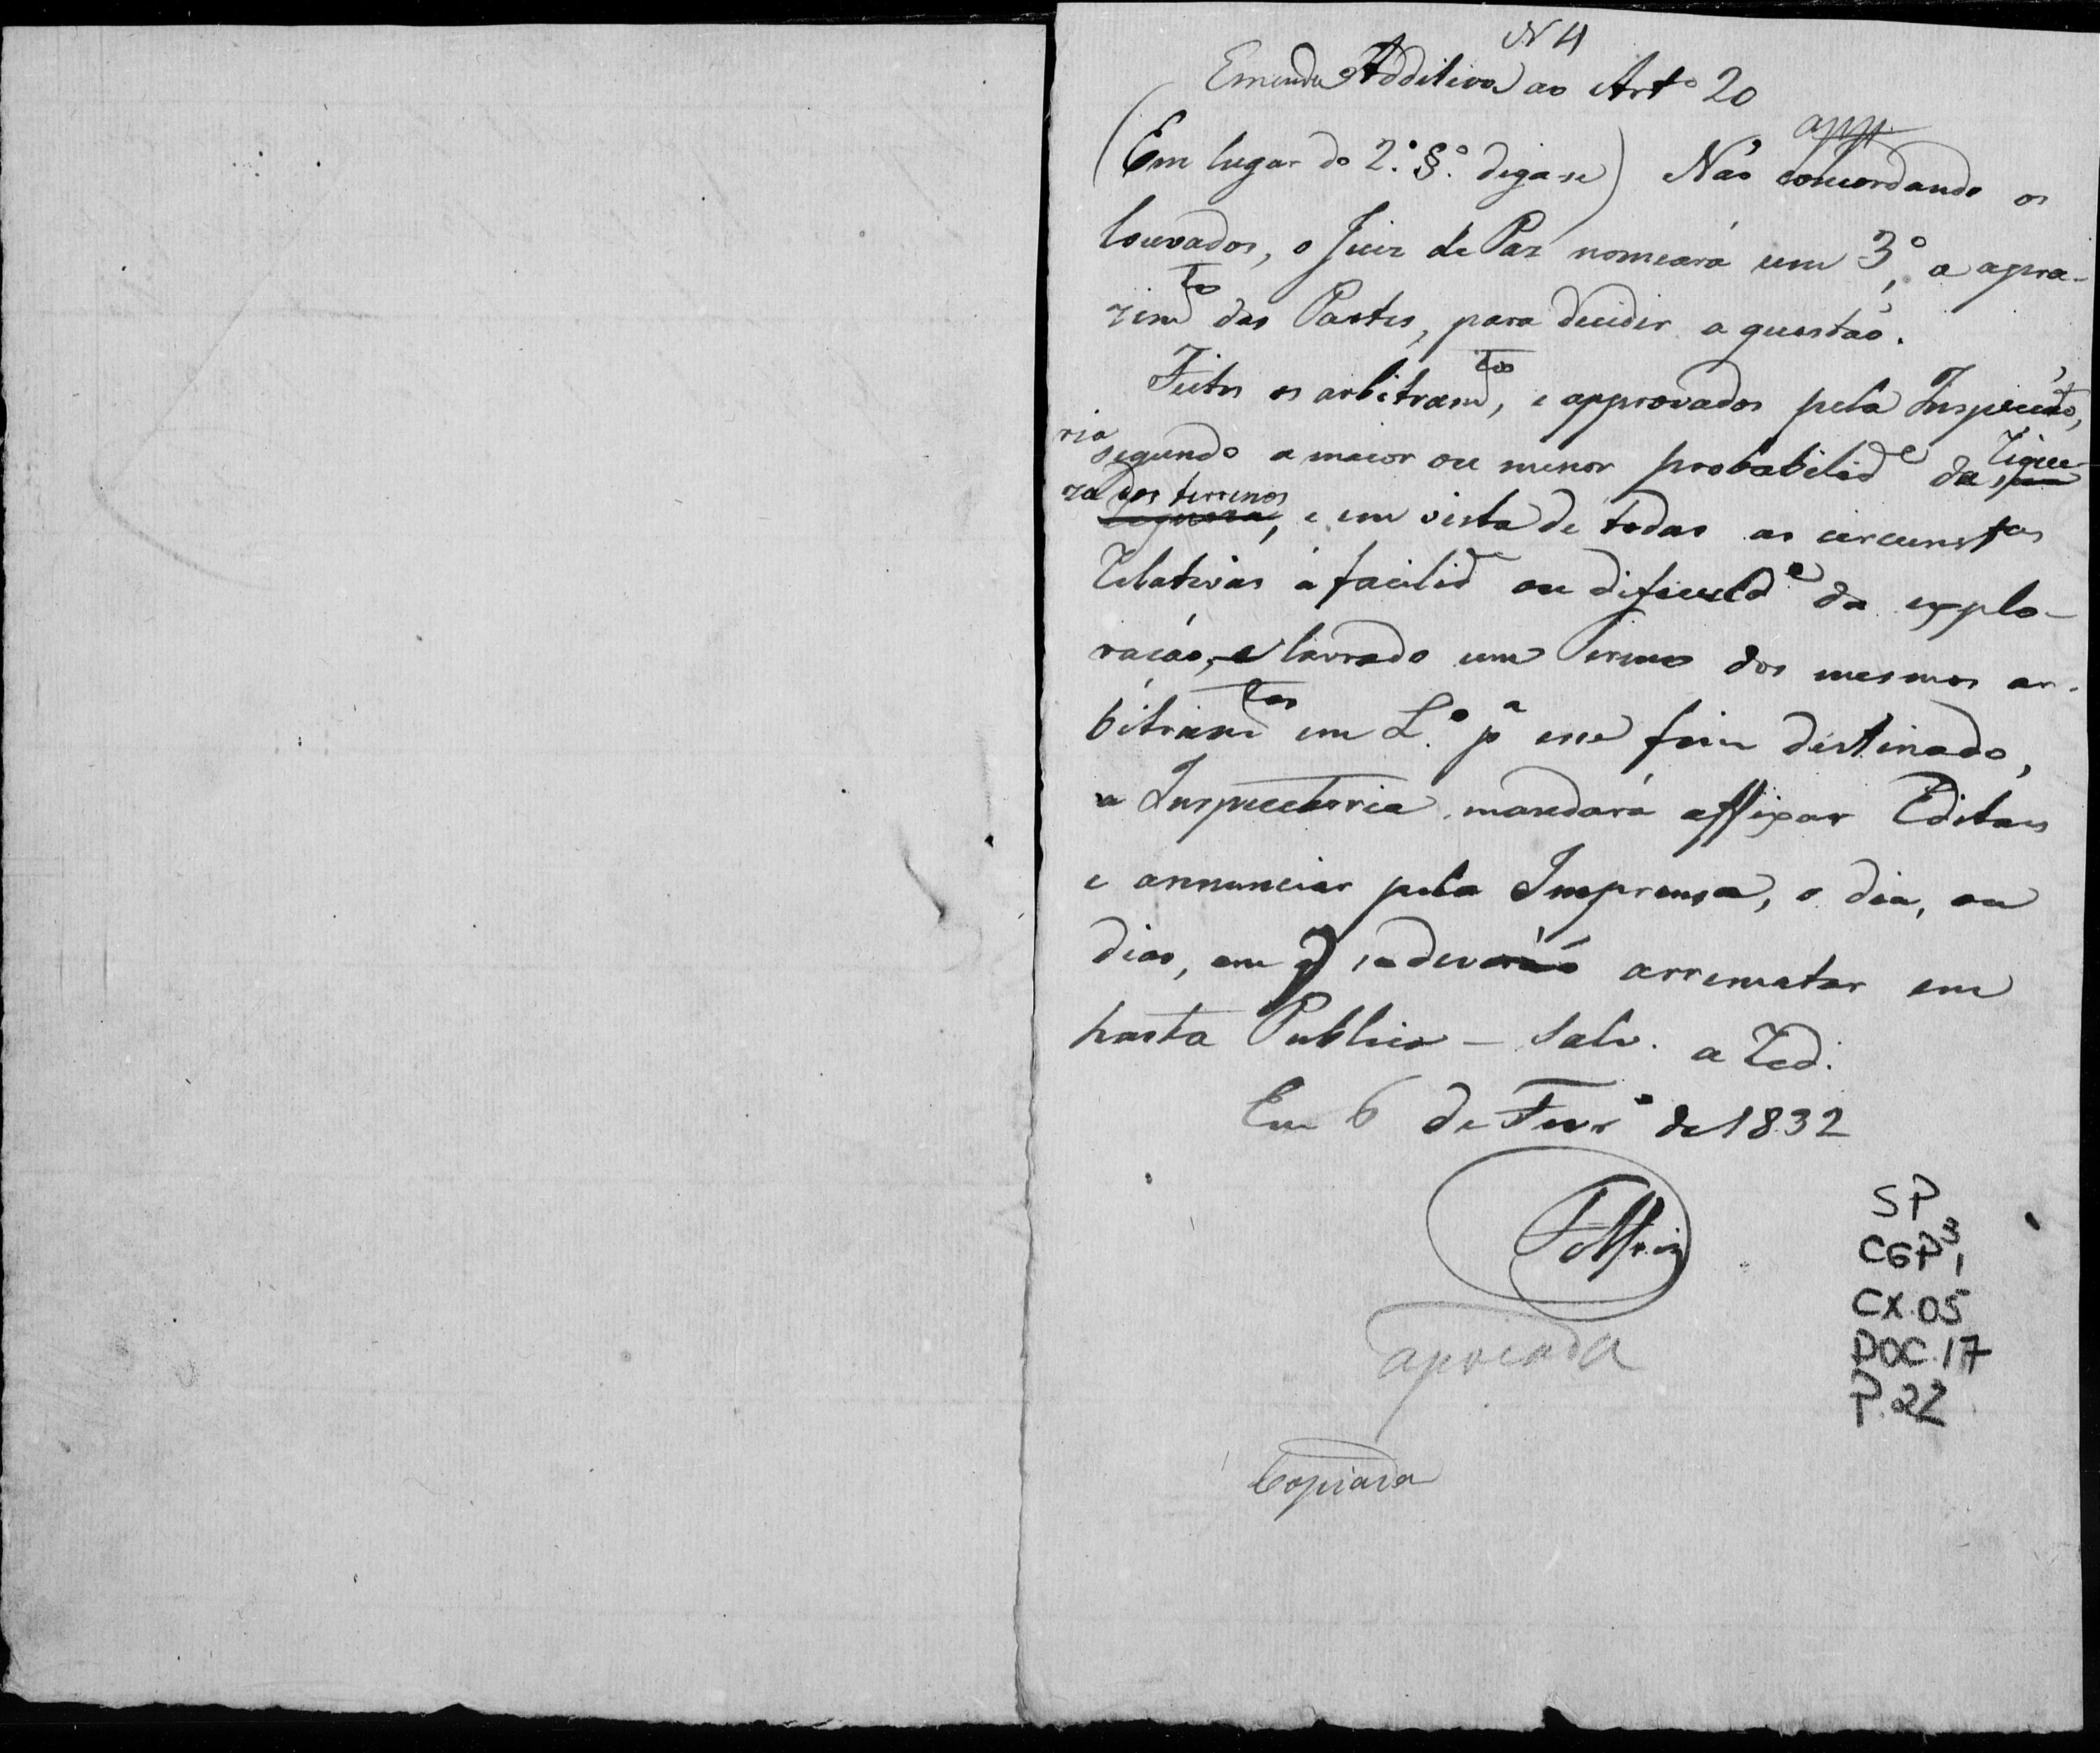 N 4
Emenda Additiva ao Artº 20
app.
(Em lugar do 2º. §º. diga-se) Não concordando os
louvados, o Juiz de Paz nomeará um 3º, a apra-
zimto das Partes, para decidir a questão.
Feitos os arbitramtos, e approvados pela Inspecto,
ria segundo a maior ou menor probabilide da rique-
za dos terrenos, e em vista de todas as circunstas
relativas á facilide ou dificulde da explo-
ração, e lavrado um termo dos mesmos ar-
bitramtos em Lº. pª esse fim destinado,
a Inspectoria mandará affixar Editaes
e annunciar pela Imprensa, o dia, ou
dias, em q se deverão arrematar em
hasta Publica - Salv. a red.
Em 6 de Fevrº de 1832
apoiada
Copiada
SP
CGP3,1
CX.05
DOC.17
P.22